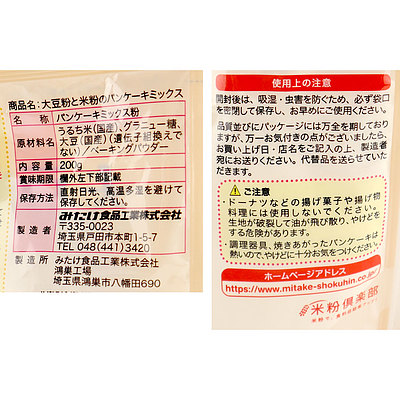 商品名：大豆粉と米粉のパンケーキミックス
名　称　パンケーキミックス粉
原材料名　うるち米(国産)、グラニュー糖、
大豆(国産)(遺伝子組換えで
ない)／ベーキングパウダー
内容量　200g
賞味期限　欄外左下部記載
保存方法　直射日光、高温多湿を避けて
保存してください。
製造者　みたけ食品工業株式会社
〒335-0023
埼玉県戸田市本町1-5-7
TEL 048(441)3420
製造所　みたけ食品工業株式会社
鴻巣工場
埼玉県鴻巣市八幡田690
使用上の注意
開封後は、吸湿・虫害を防ぐため、必ず袋口
を密閉して保存し、お早めにご使用ください。
品質並びにパッケージには万全を期しており
ますが、万一お気付きの点がございましたら、
お買い上げ日・店名をご記入の上、製造者
宛にお送りください。代替品を送らせていた
だきます。
ご注意
・ドーナツなどの揚げ菓子や揚げ物
料理には使用しないでください。
生地が破裂して油が飛び散り、やけどを
する危険があります。
・調理器具、焼きあがったパンケーキは
熱いので、やけどに十分お気をつけください。
ホームページアドレス
https://www.mitake-shokuhin.co.jp/
米粉倶楽部